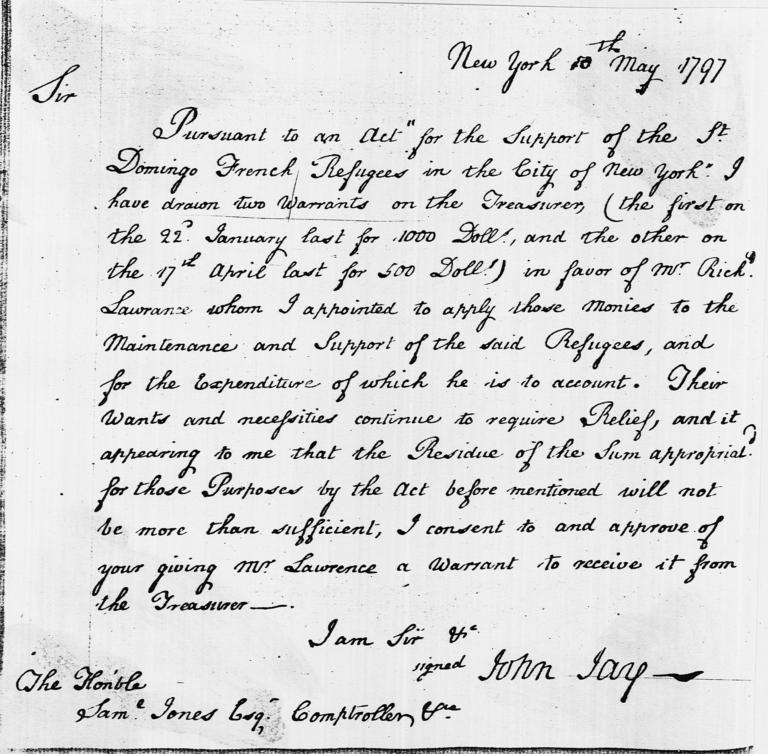 New York 10th May 1797
Sir
Pursuant to an Act "for the Support of the St.
Domingo French Refugees in the City of New York" I
have drawn two Warrants on the Treasurer, (the first on
the 22d. January last for 1000 Dolls., and the other on
the 17th April last for 500 Dolls.) in favor of Mr Richd.
Lawrance whom I appointed to apply those Monies to the
Maintenance and Support of the said Refugees, and
for the Expenditure of which he is to account. Their
Wants and necessities continue to require Relief, and it
appearing to me that the Residue of the Sum appropriatd.
for those Purposes by the Act before mentioned will not
be more than sufficient, I consent to and approve of
your giving Mr. Lawrence a Warrant to receive it from
the Treasurer—.
I am Sir &c
signed John Jay—
The Honble
Saml. Jones Esqr, Comptroller, &c